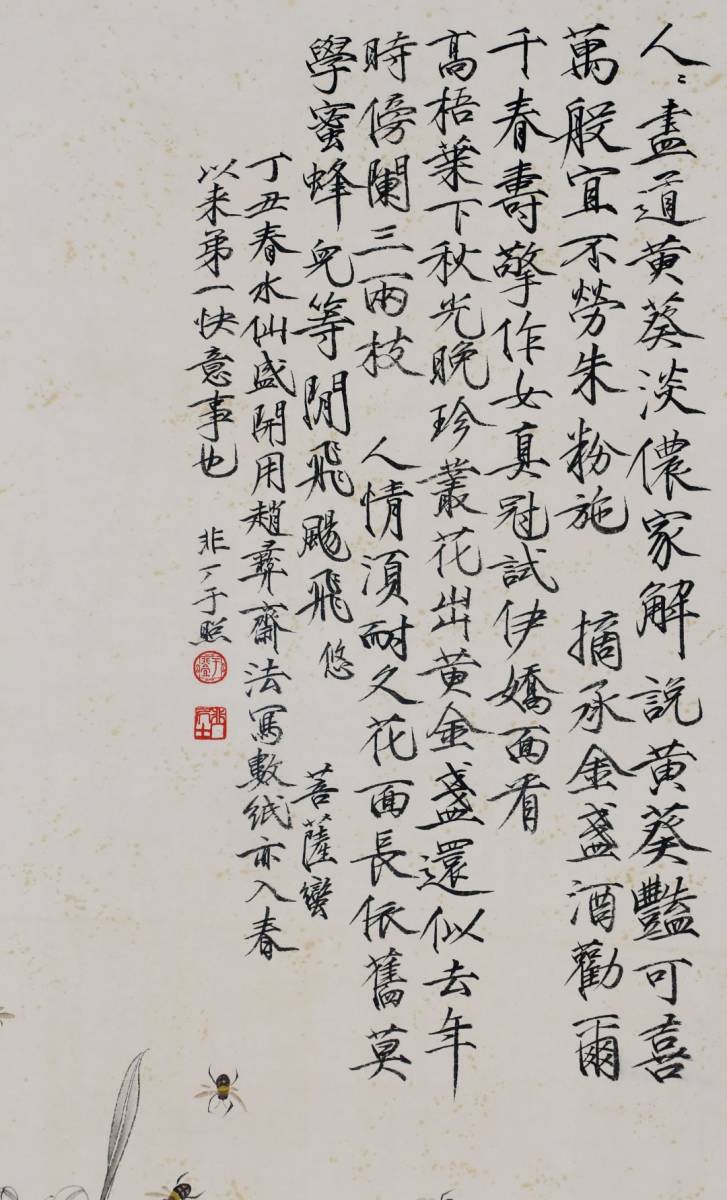 人〻盡道黄葵淡儂家解説黄葵豔可喜
萬般宜不勞朱粉施　摘承金盞酒勸爾
千春壽擎作女真冠試伊嬌面看
高梧葉下秋光晚珍叢花出黄金盞還似去年
時傍闌三兩枝　人情須耐久花面長依舊莫
學蜜蜂兒等閒飛颺飛悠　菩薩蠻
丁丑春水仙盛開用趙彝齋法寫數紙亦入春
以来第一快意事也　非厂于照